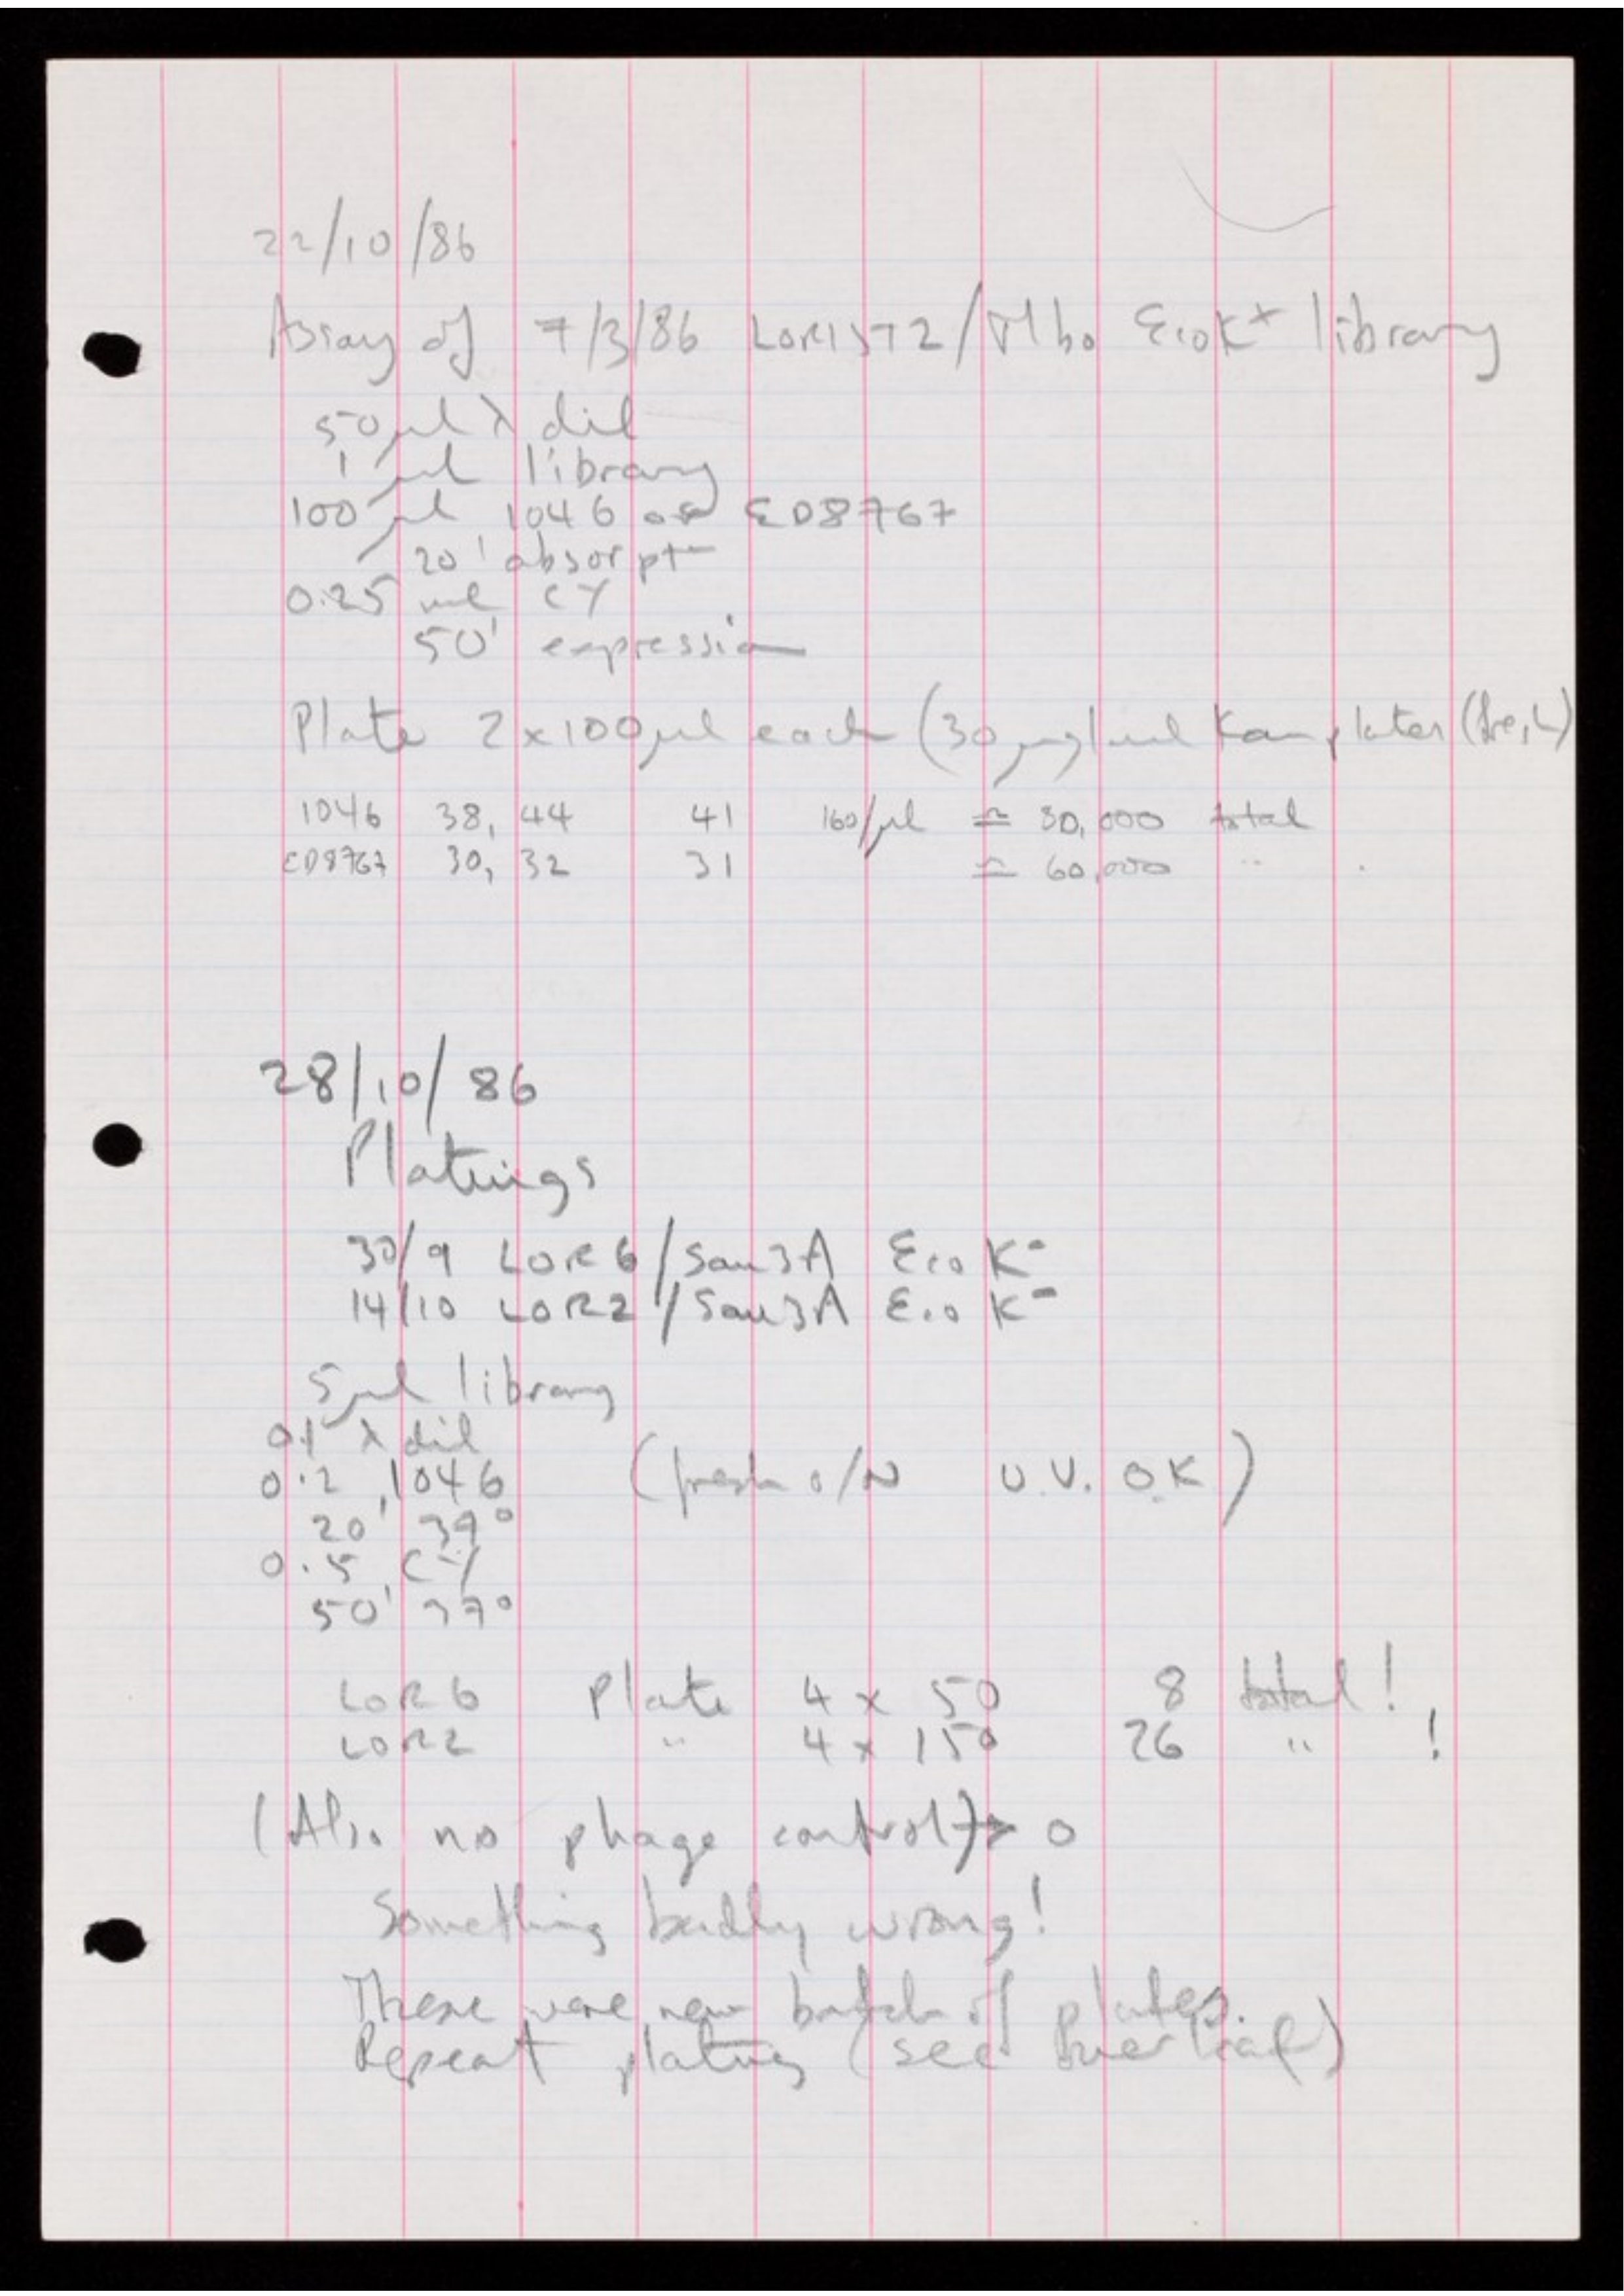 22/10/86
Assay of 7/3/86 LORIST2/Mbo EcoK+ library
50 µl λ dil
1 µl library
100 µl 1046 or ED8767
20' absorptn
0.25 ml CY
50' expression
Plate 2 x 100 µl each (30 µg/ml Kan plates (fresh)
1046 38, 44 41 160/µl ≃ 80,000 total
ED8767 30, 32 31 ≃ 60,000 "
28/10/86
Platings
30/9 LOR6/Sau3A Eco K-
14/10 LOR2/Sau3A Eco K-
5 µl library
0.1 λ dil
0.2 1046 (fresh o/N U.V. O.K)
20' 37°
0.5 CY
50' 37°
LOR6 Plate 4 x 50 8 total!
LOR2 " 4 x 150 26 " !
(Also no phage control) → 0
Something badly wrong!
These were new batch of plates.
Repeat plating (see overleaf)